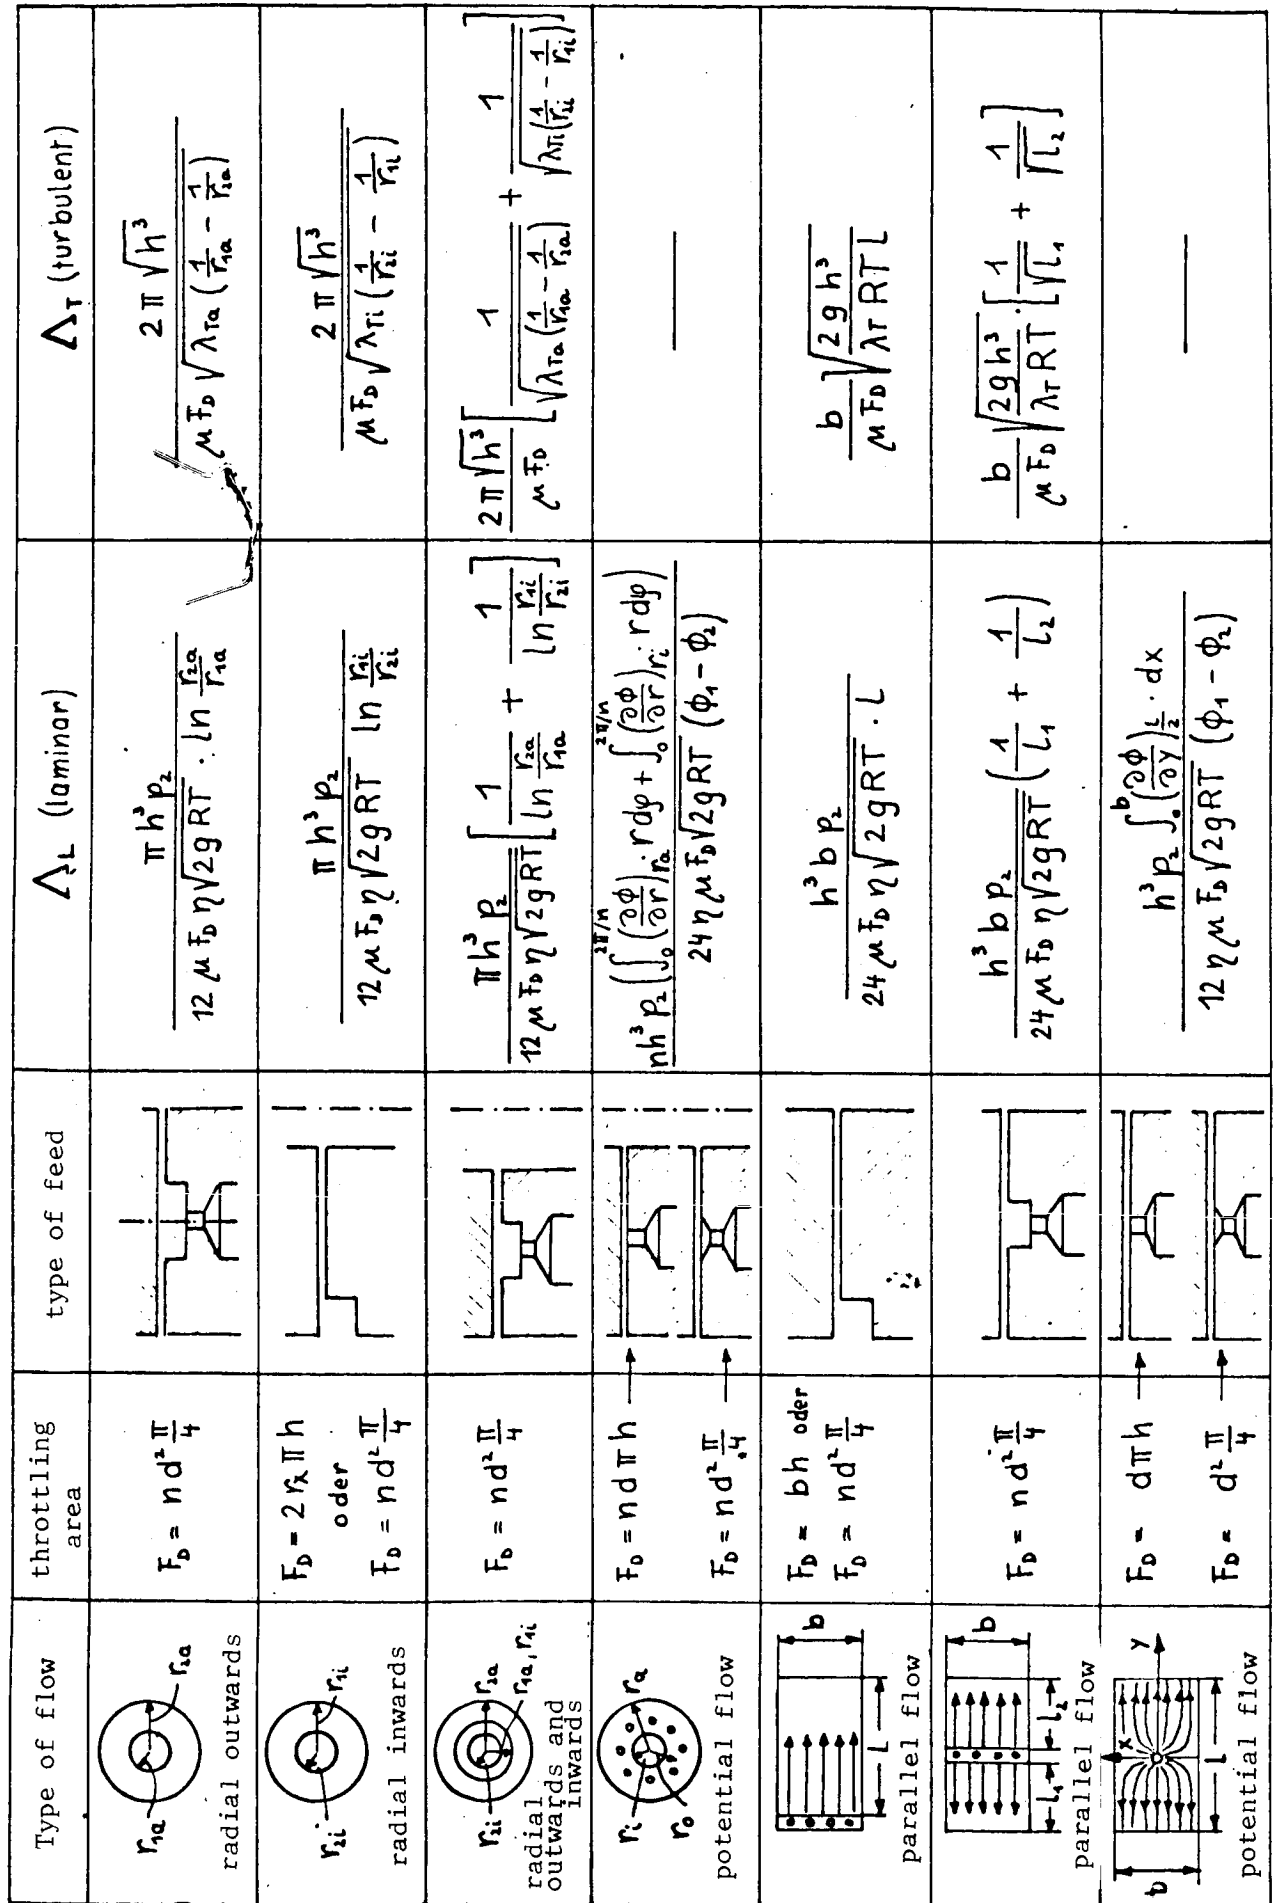 Type of flow
throttling area
type of feed
Λ_L (laminar)
Λ_T (turbulent)
r₁a
r₂a
radial outwards
F_D = n d² π/4
π h³ p₂ / (12 μ F_D η √(2gRT) · ln (r₂a/r₁a))
2π √h³ / (μ F_D √(λ_Ta (1/r₁a − 1/r₂a)))
r₂i
r₁i
radial inwards
F_D = 2 r_x π h
oder
F_D = n d² π/4
π h³ p₂ / (12 μ F_D η √(2gRT) ln (r₁i/r₂i))
2π √h³ / (μ F_D √(λ_Ti (1/r₂i − 1/r₁i)))
r₂i
r₂a
r₁a, r₁i
radial
outwards and
inwards
F_D = n d² π/4
π h³ p₂ / (12 μ F_D η √(2gRT)) [1 / ln (r₂a/r₁a) + 1 / ln (r₁i/r₂i)]
2π √h³ / (μ F_D) [1 / √(λ_Ta (1/r₁a − 1/r₂a)) + 1 / √(λ_Ti (1/r₂i − 1/r₁i))]
r_i
r_a
r_o
potential flow
F_D = n d π h
F_D = n d² π/4
n h³ p₂ (∫₀^{2π/n} (∂Φ/∂r)_ra · r dφ + ∫₀^{2π/n} (∂Φ/∂r)_ri · r dφ) / (24 η μ F_D √(2gRT) (Φ₁ − Φ₂))
—
b
L
parallel flow
F_D = b h oder
F_D = n d² π/4
h³ b p₂ / (24 μ F_D η √(2gRT) · L)
b / (μ F_D) √(2g h³ / (λ_T RT L))
b
L₁
L₂
parallel flow
F_D = n d² π/4
h³ b p₂ / (24 μ F_D η √(2gRT)) (1/L₁ + 1/L₂)
b / (μ F_D) √(2g h³ / (λ_T RT)) · [1/√L₁ + 1/√L₂]
b
x
y
L
potential flow
F_D = d π h
F_D = d² π/4
h³ p₂ ∫₀^b (∂Φ/∂y)_{L/2} · dx / (12 η μ F_D √(2gRT) (Φ₁ − Φ₂))
—